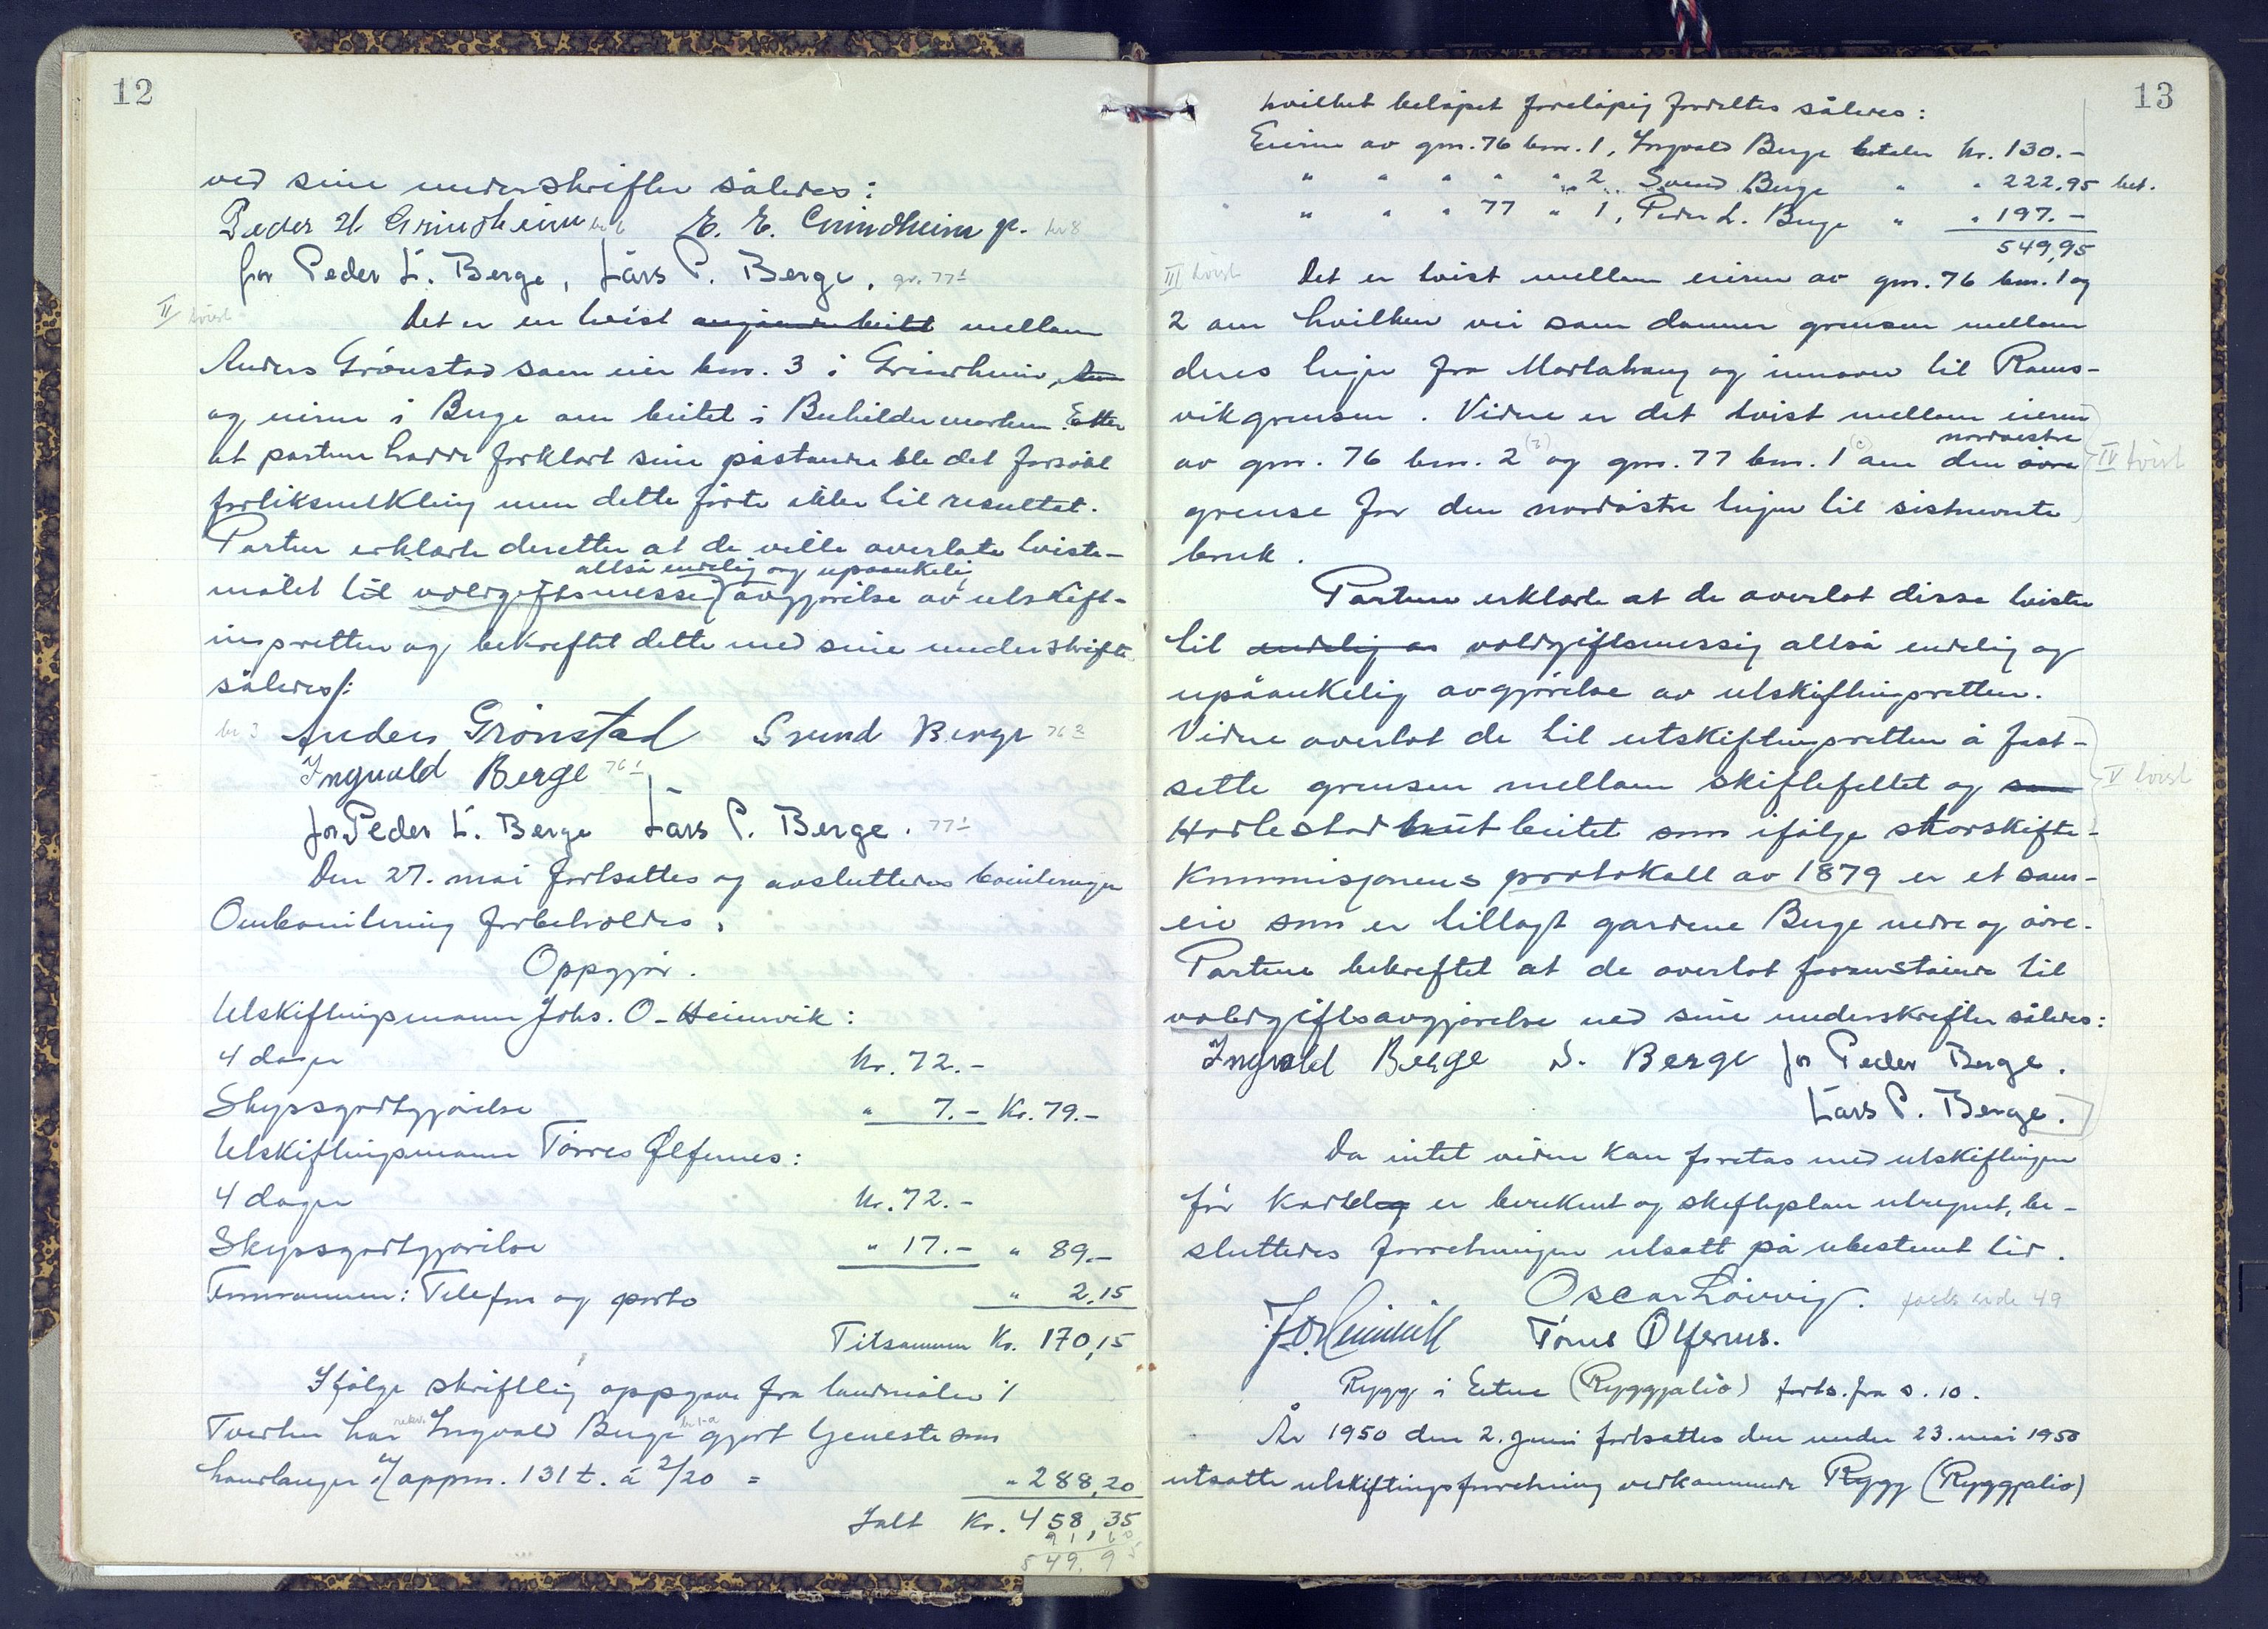 12
ved sine underskrifter således:
Peder H. Grindheim br 6 E. E. Grindheim gr. br 8
for Peder L. Berge, Lars P. Berge. gr. 77¹
II tvist Det er en tvist angående beite mellom
Anders Grønstad som eier bnr. 3 i Grindheim,
og eierne i Berge om beitet i Buhildermarken. Etter
at partene hadde forklart sine påstander ble det forsøkt
forliksmekling men dette førte ikke til resultat.
Partene erklærte deretter at de ville overlate tviste-
altså endelig og upåankelig
målet til voldgiftsmessig avgjørelse av utskift-
ingsretten og bekreftet dette med sine underskrifter
således:
br 3 Anders Grønstad Svend Berge 76²
Ingvald Berge 76¹
for Peder L. Berge Lars P. Berge. 77¹
Den 27. mai fortsattes og avsluttedes boniteringen
Ombonitering forbeholdes.
Oppgjør.
Utskiftingsmann Johs. O. Heimvik:
4 dager kr. 72.-
Skyssgodtgjørelse " 7.- Kr. 79.-
Utskiftingsmann Tørres Ølfernes:
4 dager kr. 72.-
Skyssgodtgjørelse " 17.- " 89.-
Formannen: Telefon og porto " 2,15
Tilsammen Kr. 170,15
Ifølge skriftlig oppgave fra landmåler
Tveiten har Ingvald Berge gjort tjeneste som
håndlanger v/ oppm. 131 t. à 2/20 = " 288,20
Ialt Kr. 458,35
91,60
549,95
13
hvilket beløpet foreløpig fordeltes således:
Eieren av gnr. 76 bnr. 1, Ingvald Berge betaler kr. 130.-
" " " " " 2 Svend Berge " " 222,95 bet.
" " " 77 " 1, Peder L. Berge " " 197.-
549,95
III tvist Det er tvist mellom eieren av gnr. 76 bnr. 1 og
2 om hvilken vei som danner grensen mellom
deres teiger fra Martahaug og innover til Rams-
vikgrensen. Videre er det tvist mellom eieren
nordøstre
av gnr. 76 bnr. 2 og gnr. 77 bnr. 1 om den øvre IV tvist
grense for den nordøstre teigen til sistnevnte
bruk.
Partene erklærte at de overlot disse tvister
til endelig og voldgiftsmessig altså endelig og
upåankelig avgjørelse av utskiftingsretten.
Videre overlot de til utskiftingsretten å fast-
sette grensen mellom skiftefeltet og som V tvist
Harlestad beitet som ifølge storskifte-
kommisjonens protokoll av 1879 er et sam-
eie som er tillagt gardene Berge nedre og øvre.
Partene bekreftet at de overlot foranstående til
voldgiftsavgjørelse ved sine underskrifter således:
Ingvald Berge S. Berge for Peder Berge.
Lars P. Berge.
Da intet videre kan foretas med utskiftingen
før kartet er beregnet og skifteplan utregnet, be-
sluttedes forretningen utsatt på ubestemt tid.
Oscar Løvvig. forts side 49
J. O. Heimvik Tørres Ølfernes.
Rygg i Etne (Ryggjalio) forts. fra s. 10.
År 1950 den 2. juni fortsattes den under 23. mai 1950
utsatte utskiftingsforretning vedkommende Rygg (Ryggjalio)